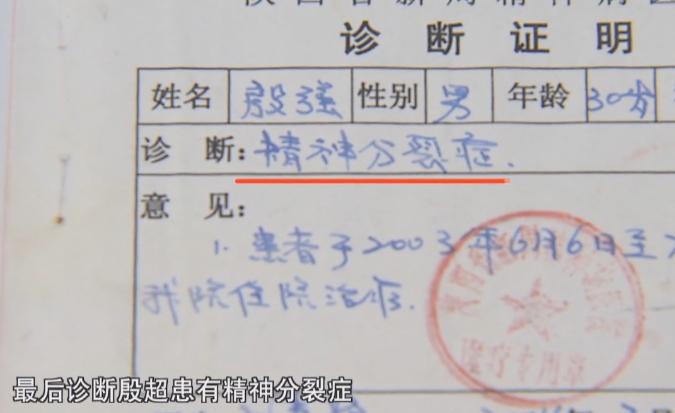 诊断证明
姓名 殷强 性别 男 年龄 30岁
诊 断：精神分裂症.
意 见：
1. 患者于2003年6月6日至
我院住院治疗.
医疗专用章
最后诊断殷超患有精神分裂症